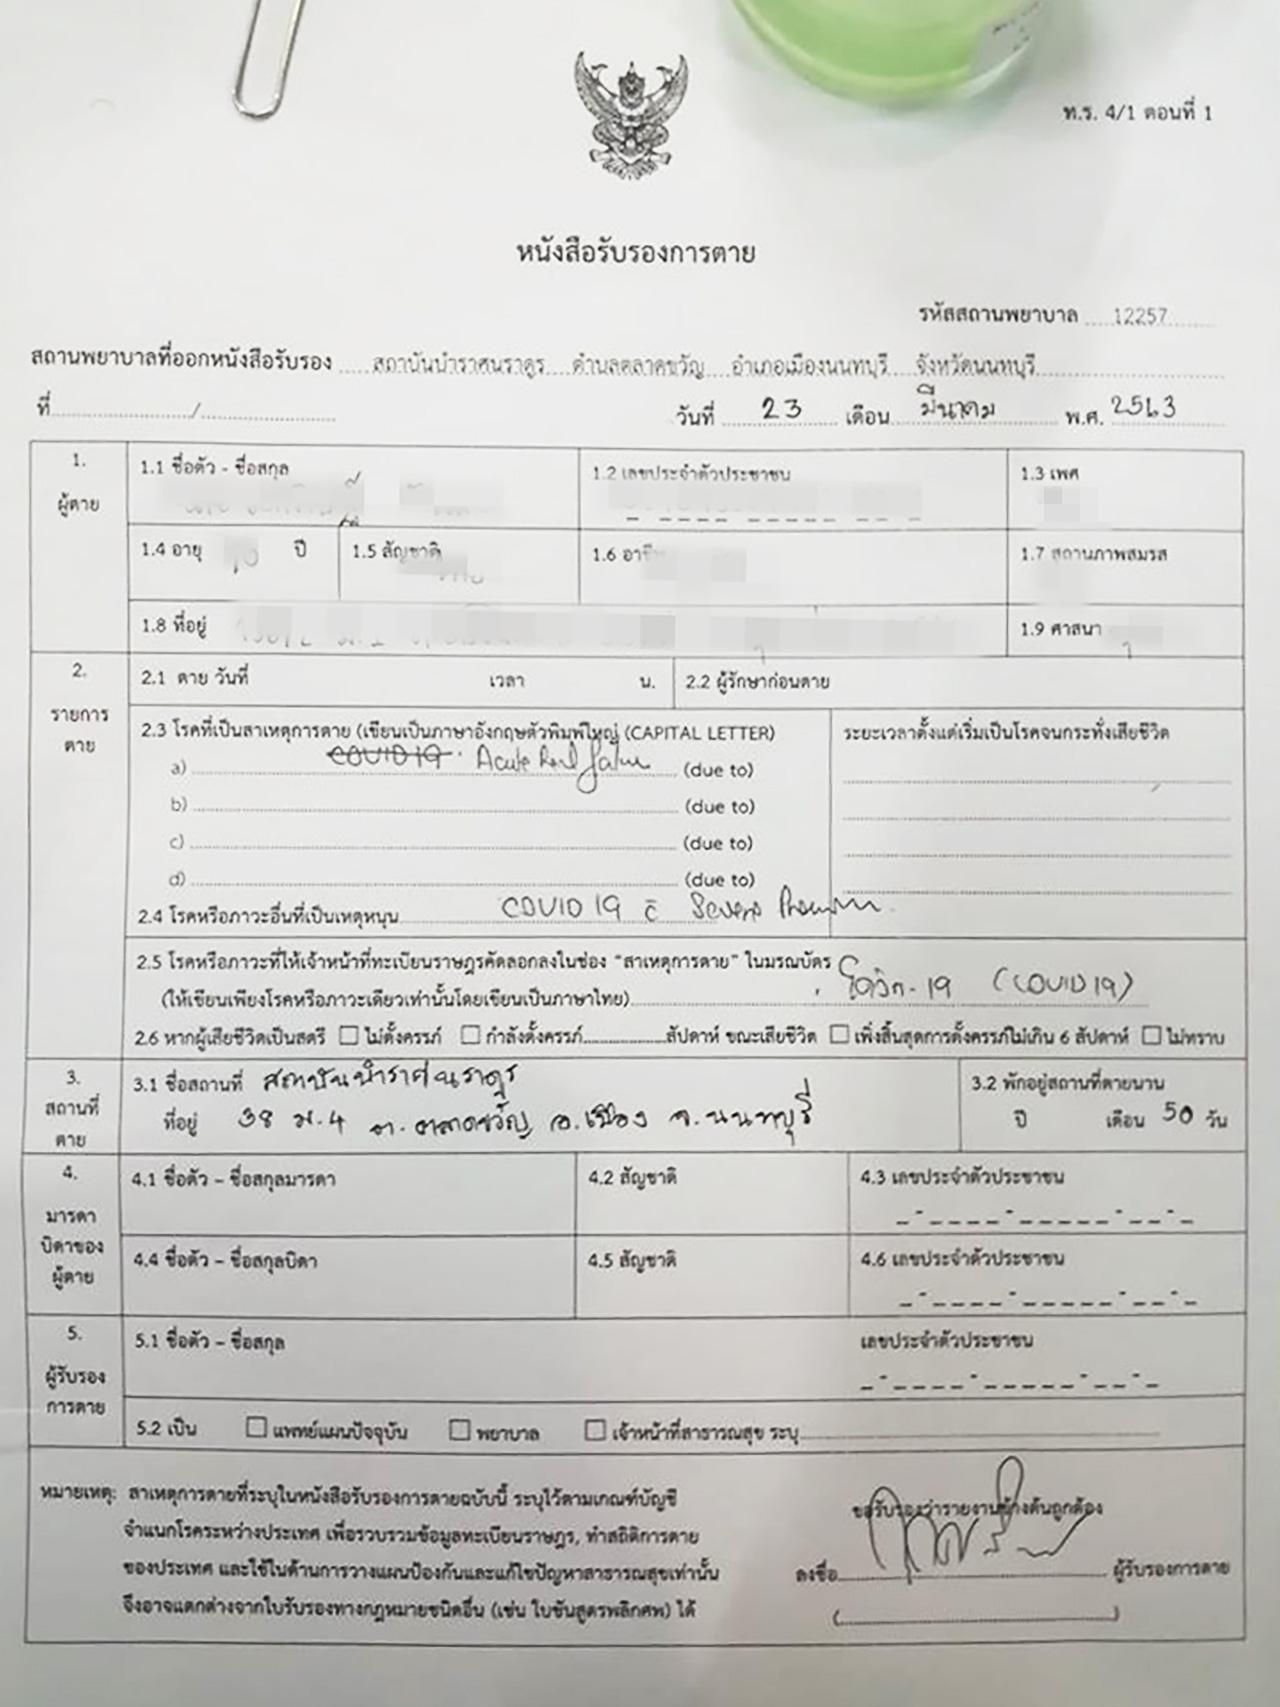 ท.ร. 4/1 ตอนที่ 1
หนังสือรับรองการตาย
รหัสสถานพยาบาล 12257
สถานพยาบาลที่ออกหนังสือรับรอง สถาบันบำราศนราดูร ตำบลตลาดขวัญ อำเภอเมืองนนทบุรี จังหวัดนนทบุรี
ที่ / วันที่ 23 เดือน มีนาคม พ.ศ. 2563
1. ผู้ตาย
1.1 ชื่อตัว - ชื่อสกุล
1.2 เลขประจำตัวประชาชน
1.3 เพศ
1.4 อายุ ปี
1.5 สัญชาติ
1.6
1.7 สถานภาพสมรส
1.8 ที่อยู่
1.9 ศาสนา
2. รายการตาย
2.1 ตาย วันที่ เวลา น.
2.2 ผู้รักษาก่อนตาย
2.3 โรคที่เป็นสาเหตุการตาย (เขียนเป็นภาษาอังกฤษตัวพิมพ์ใหญ่ (CAPITAL LETTER)
ระยะเวลาตั้งแต่เริ่มเป็นโรคจนกระทั่งเสียชีวิต
a) COVID 19 Acute (due to)
b) (due to)
c) (due to)
d) (due to)
2.4 โรคหรือภาวะอื่นที่เป็นเหตุหนุน COVID 19 c̄ Severe
2.5 โรคหรือภาวะที่ให้เจ้าหน้าที่ทะเบียนราษฎรคัดลอกลงในช่อง "สาเหตุการตาย" ในมรณบัตร
(ให้เขียนเพียงโรคหรือภาวะเดียวเท่านั้นโดยเขียนเป็นภาษาไทย) โควิด-19 (COVID 19)
2.6 หากผู้เสียชีวิตเป็นสตรี ☐ ไม่ตั้งครรภ์ ☐ กำลังตั้งครรภ์ สัปดาห์ ขณะเสียชีวิต ☐ เพิ่งสิ้นสุดการตั้งครรภ์ไม่เกิน 6 สัปดาห์ ☐ ไม่ทราบ
3. สถานที่ตาย
3.1 ชื่อสถานที่ สถาบันบำราศนราดูร
ที่อยู่ 38 ม.4 ต.ตลาดขวัญ อ.เมือง จ.นนทบุรี
3.2 พักอยู่สถานที่ตายนาน
ปี เดือน 50 วัน
4. มารดา บิดาของผู้ตาย
4.1 ชื่อตัว – ชื่อสกุลมารดา
4.2 สัญชาติ
4.3 เลขประจำตัวประชาชน
4.4 ชื่อตัว – ชื่อสกุลบิดา
4.5 สัญชาติ
4.6 เลขประจำตัวประชาชน
5. ผู้รับรองการตาย
5.1 ชื่อตัว – ชื่อสกุล
เลขประจำตัวประชาชน
5.2 เป็น ☐ แพทย์แผนปัจจุบัน ☐ พยาบาล ☐ เจ้าหน้าที่สาธารณสุข ระบุ
หมายเหตุ: สาเหตุการตายที่ระบุในหนังสือรับรองการตายฉบับนี้ ระบุไว้ตามเกณฑ์บัญชี
จำแนกโรคระหว่างประเทศ เพื่อรวบรวมข้อมูลทะเบียนราษฎร, ทำสถิติการตาย
ของประเทศ และใช้ในด้านการวางแผนป้องกันและแก้ไขปัญหาสาธารณสุขเท่านั้น
จึงอาจแตกต่างจากใบรับรองทางกฎหมายชนิดอื่น (เช่น ใบชันสูตรพลิกศพ) ได้
ขอรับรองว่ารายงานข้างต้นถูกต้อง
ลงชื่อ ผู้รับรองการตาย
( )